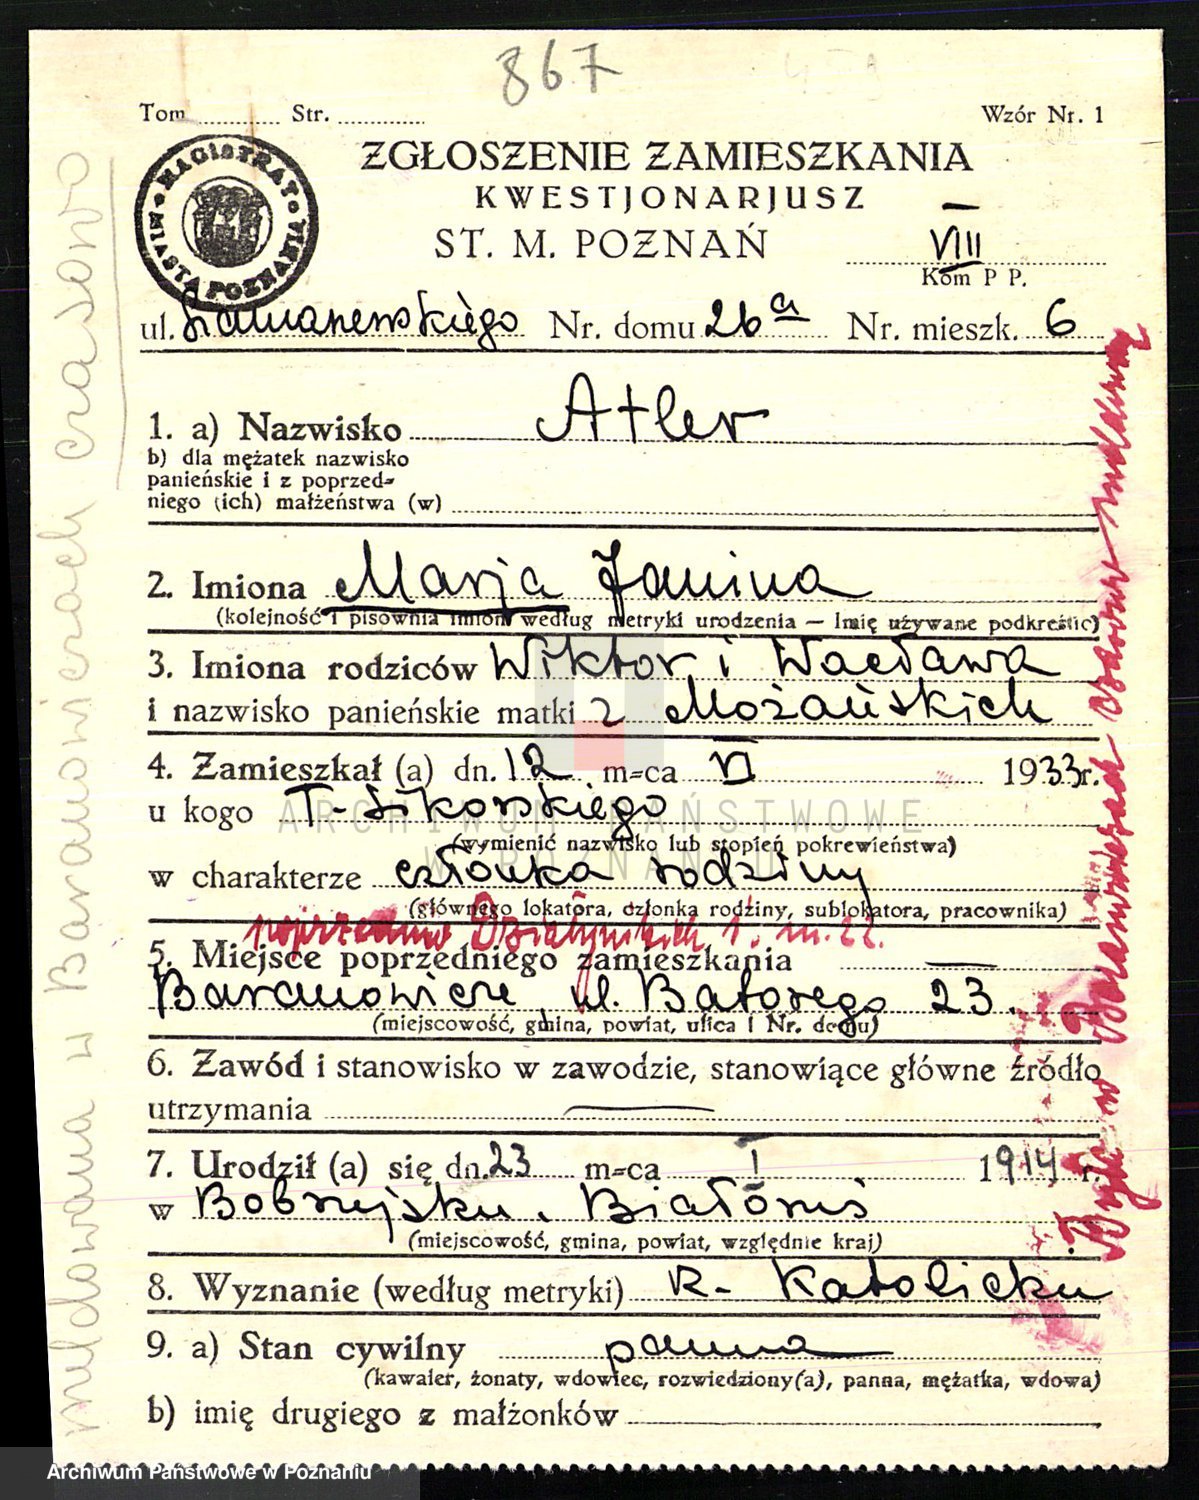 867
Tom ........ Str. ........ Wzór Nr. 1
MAGISTRAT MIASTA POZNANIA
ZGŁOSZENIE ZAMIESZKANIA
KWESTJONARJUSZ
ST. M. POZNAŃ VIII
Kom P P.
ul. Szamarzewskiego Nr. domu 26a Nr. mieszk. 6
1. a) Nazwisko Atler
b) dla mężatek nazwisko
panieńskie i z poprzed-
niego (ich) małżeństwa (w)
2. Imiona Marja Janina
(kolejność i pisownia imion według metryki urodzenia — Imię używane podkreślić)
3. Imiona rodziców Wiktor i Wacława
i nazwisko panieńskie matki z Możańskich
4. Zamieszkał (a) dn. 12 m-ca VI 1933 r.
u kogo T. Sikorskiego
(wymienić nazwisko lub stopień pokrewieństwa)
w charakterze członka rodziny
(głównego lokatora, członka rodziny, sublokatora, pracownika)
poprzednio Działyńskich 1. m. 22.
5. Miejsce poprzedniego zamieszkania
Baranowicze ul. Batorego 23.
(miejscowość, gmina, powiat, ulica i Nr. domu)
6. Zawód i stanowisko w zawodzie, stanowiące główne źródło
utrzymania —
7. Urodził (a) się dn. 23 m-ca I 1914 r.
w Bobrujsku. Białoruś
(miejscowość, gmina, powiat, względnie kraj)
8. Wyznanie (według metryki) R- Katolicku
9. a) Stan cywilny panna
(kawaler, żonaty, wdowiec, rozwiedziony(a), panna, mężatka, wdowa)
b) imię drugiego z małżonków
meldowana w Baranowiczach czasowo
Była w Baranowiczach czasowo meldowana
ARCHIWUM PAŃSTWOWE
W POZNANIU
Archiwum Państwowe w Poznaniu